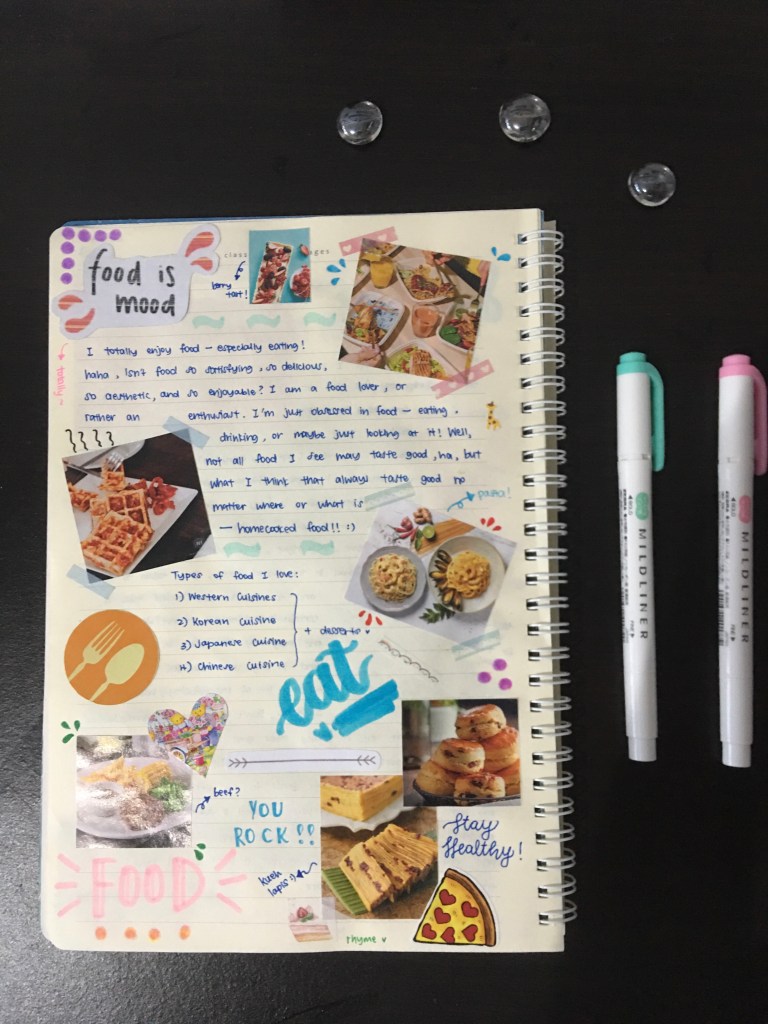 food is
mood
class
ages
berry
tart!
totally~
I totally enjoy food — especially eating!
haha, isn't food so satisfying, so delicious,
so aesthetic, and so enjoyable? I am a food lover, or
rather an enthusiast. I'm just obsessed in food — eating,
drinking, or maybe just looking at it! Well,
not all food I see may taste good, ha, but
what I think that always taste good no
matter where or what is
— homecooked food!! :)
pasta!
Types of food I love:
1) Western Cuisines
2) Korean Cuisine
3) Japanese Cuisine
4) Chinese Cuisine
+ desserts
eat
beef?
YOU
ROCK!!
Stay
Healthy!
kueh
lapis :)
FOOD
rhyme
MILDLINER
MILDLINER